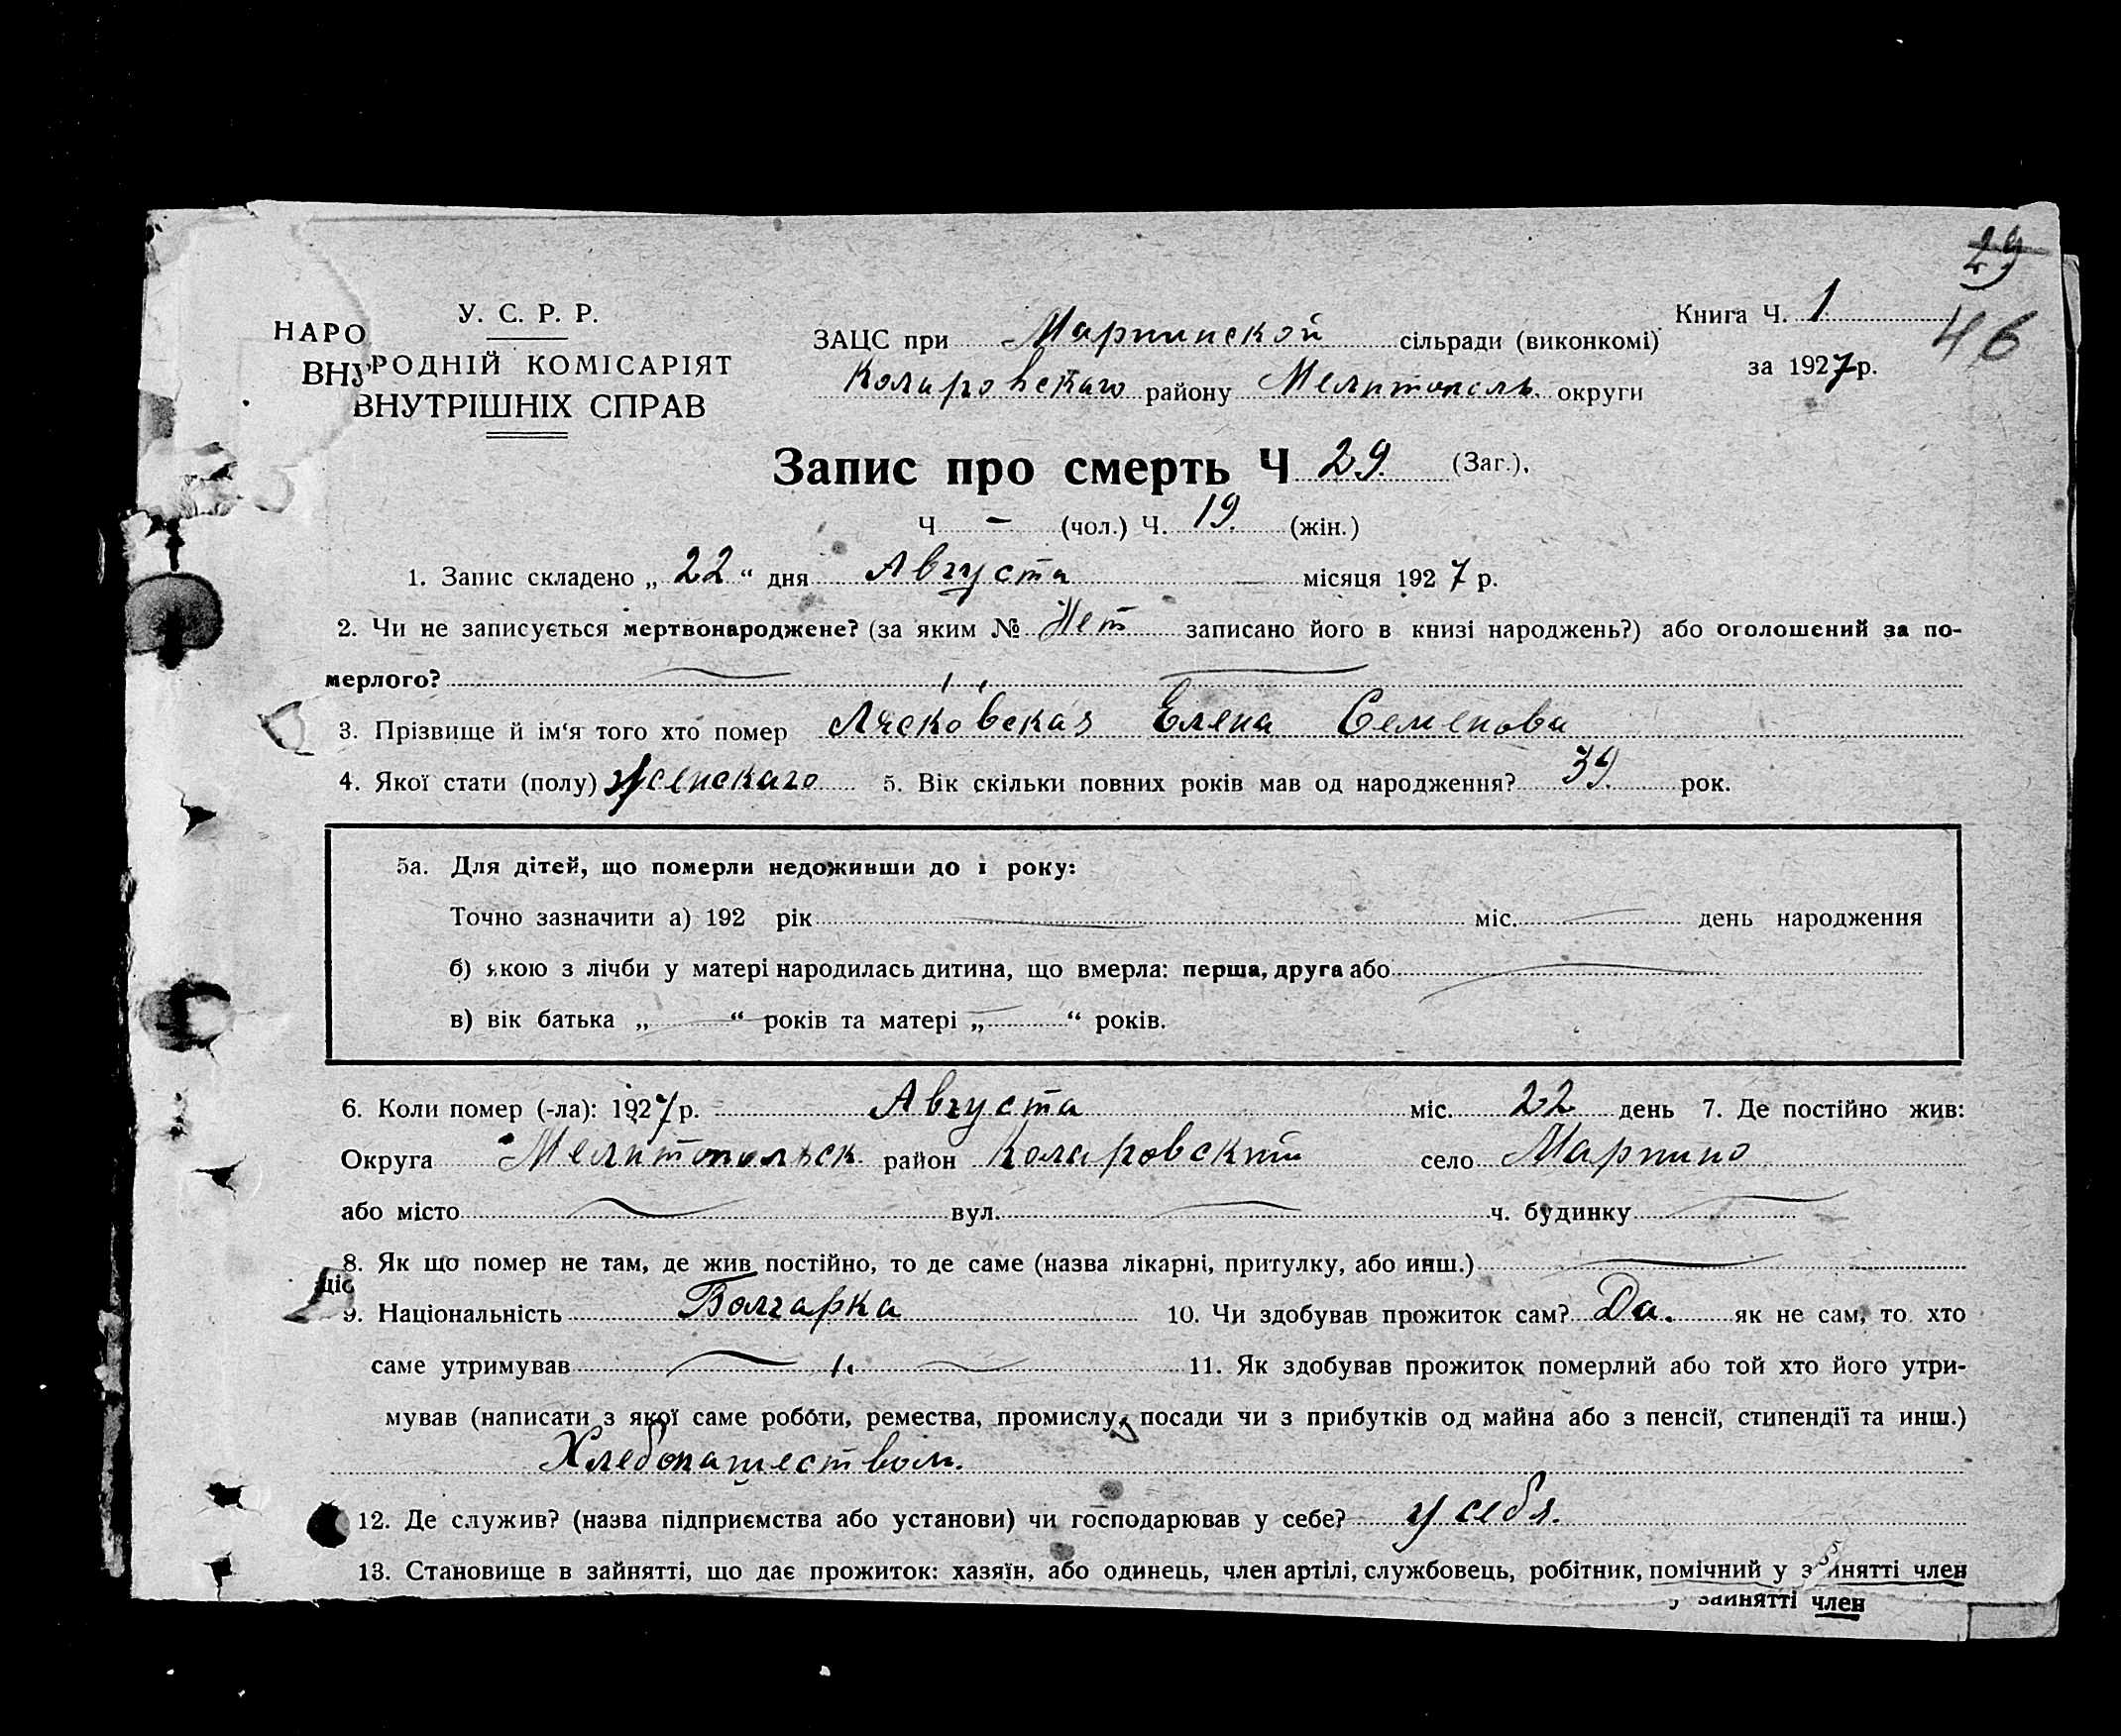 29
У. С. Р. Р.
Книга Ч. 1
46
НАРО
ВНУ
РОДНІЙ КОМІСАРІЯТ
ВНУТРІШНІХ СПРАВ
ЗАЦС при Мартинской сільради (виконкомі)
за 1927 р.
Коларовскаго району Мелитополь. округи
Запис про смерть Ч 29. (Заг.).
Ч — (чол.) Ч. 19. (жін.)
1. Запис складено „ 22 “ дня Августа — місяця 1927 р.
2. Чи не записується мертвонароджене? (за яким № Нет записано його в книзі народжень?) або оголошений за по-
мерлого?
3. Прізвище й ім‘я того хто помер Лясковская Елена Семенова
4. Якої стати (полу) женскаго 5. Вік скільки повних років мав од народження? 39. рок.
5а. Для дітей, що померли недоживши до 1 року:
Точно зазначити а) 192 рік міс. день народження
б) якою з лічби у матері народилась дитина, що вмерла: перша, друга або
в) вік батька „ “ років та матері „ “ років.
6. Коли помер (-ла): 1927 р. Августа міс. 22 день 7. Де постійно жив:
Округа Мелитопольск район Коларовский село Мартино
або місто вул. ч. будинку
8. Як що помер не там, де жив постійно, то де саме (назва лікарні, притулку, або инш.)
ціо
9. Національність Болгарка 10. Чи здобував прожиток сам? Да. як не сам, то хто
саме утримував 11. Як здобував прожиток померлий або той хто його утри-
мував (написати з якої саме роботи, ремества, промислу, посади чи з прибутків од майна або з пенсії, стипендії та инш.)
Хлебопашеством.
12. Де служив? (назва підприємства або установи) чи господарював у себе? у себя.
13. Становище в зайнятті, що дає прожиток: хазяїн, або одинець, член артілі, службовець, робітник, помічний у зайнятті член
у зайнятті член